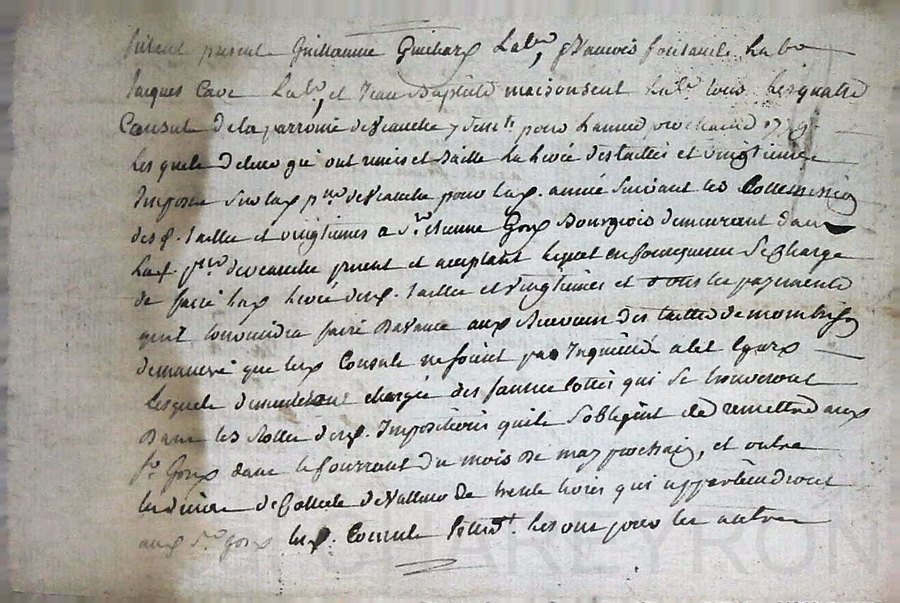 furent presents Guillaume Guichard Lab^r, françois fontanel Lab^r
Jacques Cave Lab^r, et Jean Baptiste maisonsent Lab^r tous Lesquatre
Consuls dela parroisse de pour Lannée prochaine 1779
Lesquels degré ont remis et Baillé La Levée destailles et vingtiemes
Imposés Sur lad. p^sse pour lad. année Suivant les Commission
desd. Tailles et vingtiemes a S^r etienne Bourgeois demeurant dans
Lad. p^sse present et acceptant Lequel en Consequence Se Charge
de faire Lad. Levée desd. Tailles et vingtiemes et tous les payements
quil Conviendra faire davance aux Receveurs des tailles de
demaniere que lesd. Consuls ne soient pas Inquietés a cet Egard
Lesquels demeureront chargés des fausses Cottes qui Se trouveront
Dans les Rolles desd. Impositions quils Sobligent de remettre aud.
S^r dans le Courrant du mois de may prochain, et outre
les de Collecte de trente livres qui appartiendront
aud. S^r lesd. Consuls les uns pour les autres
CHAREYRON